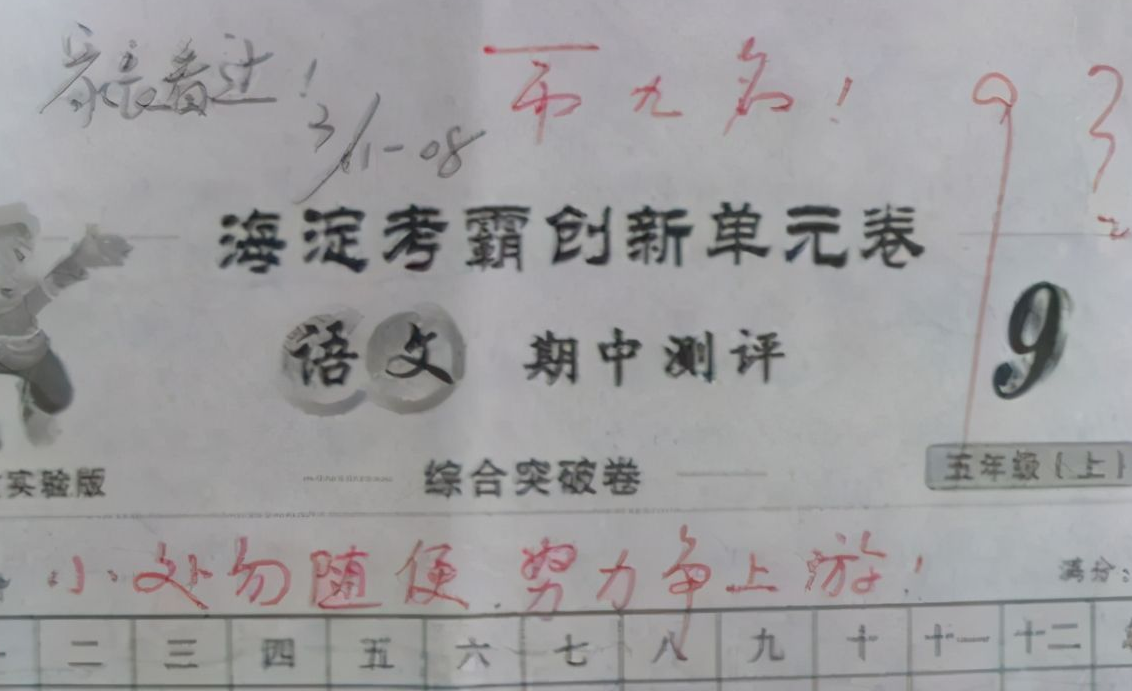 家长看过！
3/11-08
第九名！
93
海淀考霸创新单元卷
语文 期中测评
9
实验版
综合突破卷
五年级（上）
小处勿随便.努力争上游！
满分：
二 三 四 五 六 七 八 九 十 十一 十二